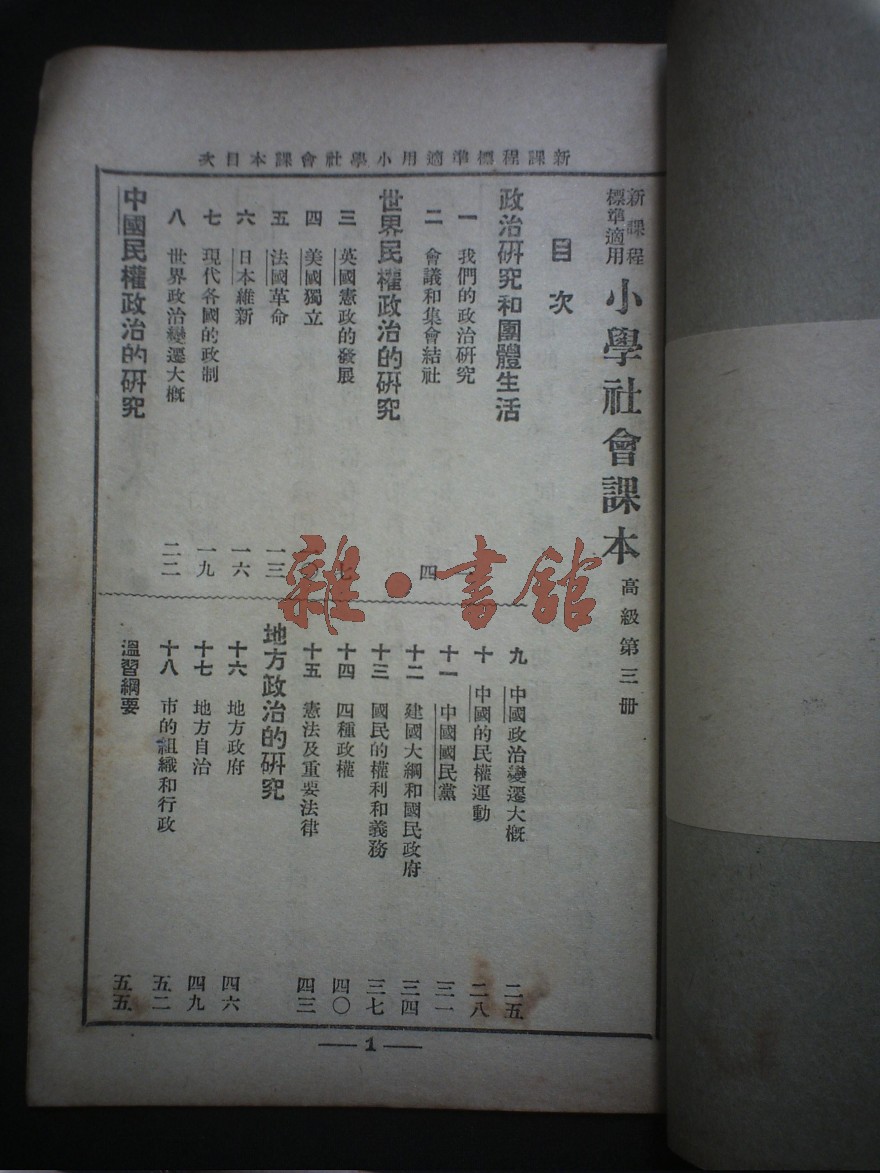 新課程標準適用小學社會課本目次
新課程
標準適用
小學社會課本 高級第三册
目次
政治研究和團體生活
一 我們的政治研究
二 會議和集會結社 四
世界民權政治的研究
三 英國憲政的發展
四 美國獨立
五 法國革命 一三
六 日本維新 一六
七 現代各國的政制 一九
八 世界政治變遷大概 二二
中國民權政治的研究
九 中國政治變遷大概 二五
十 中國的民權運動 二八
十一 中國國民黨 三一
十二 建國大綱和國民政府 三四
十三 國民的權利和義務 三七
十四 四種政權 四〇
十五 憲法及重要法律 四三
地方政治的研究
十六 地方政府 四六
十七 地方自治 四九
十八 市的組織和行政 五二
溫習綱要 五五
— 1 —
雜·書館